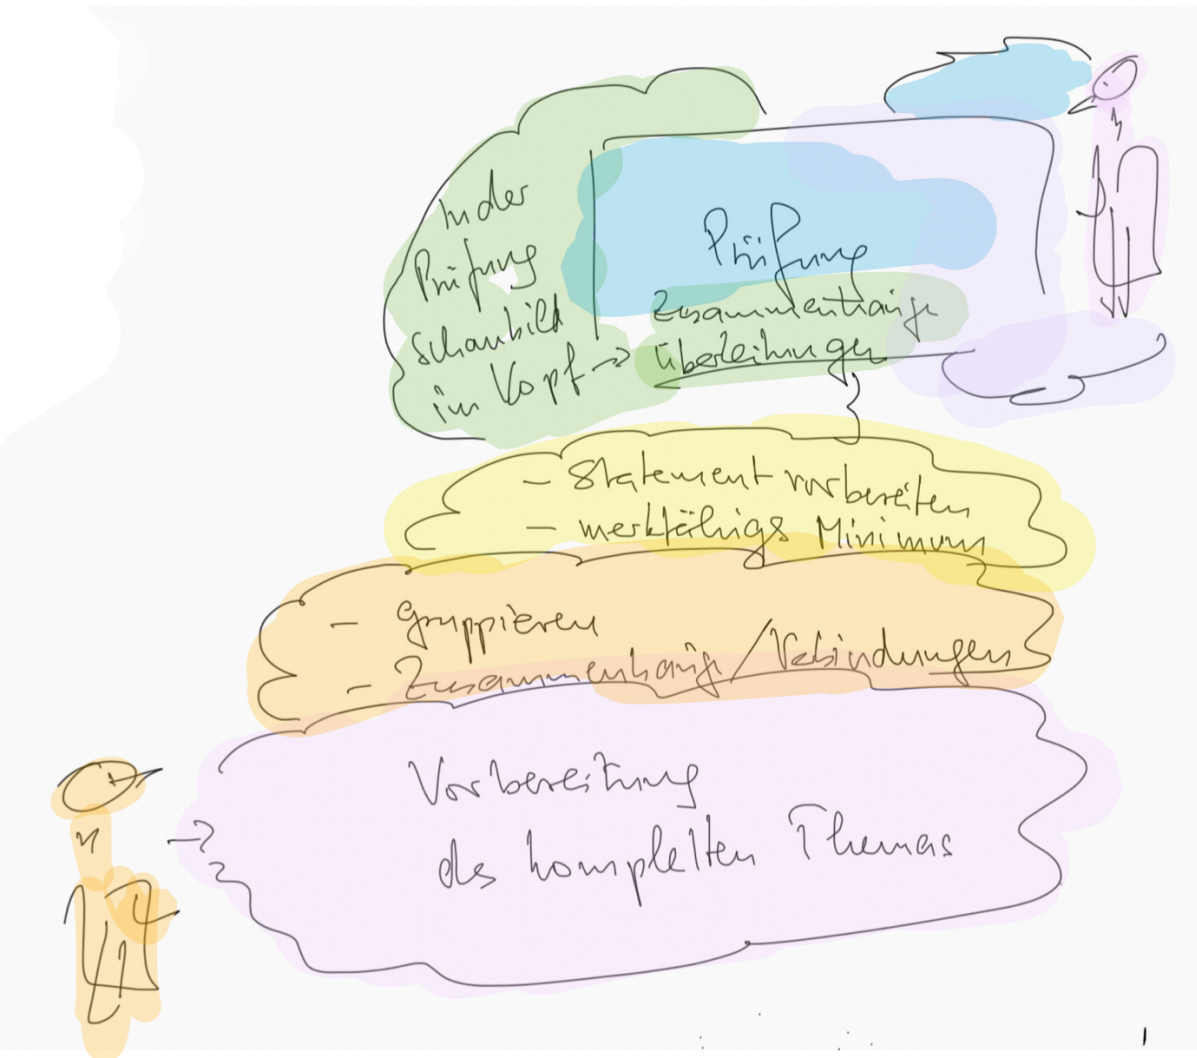 In der
Prüfung
Schaubild
im Kopf →
Prüfung
Zusammenhänge
Überleitungen
- Statement vorbereiten
- merkfähigs Minimum
- gruppieren
- Zusammenhänge/Verbindungen
→ Vorbereitung
des kompletten Themas